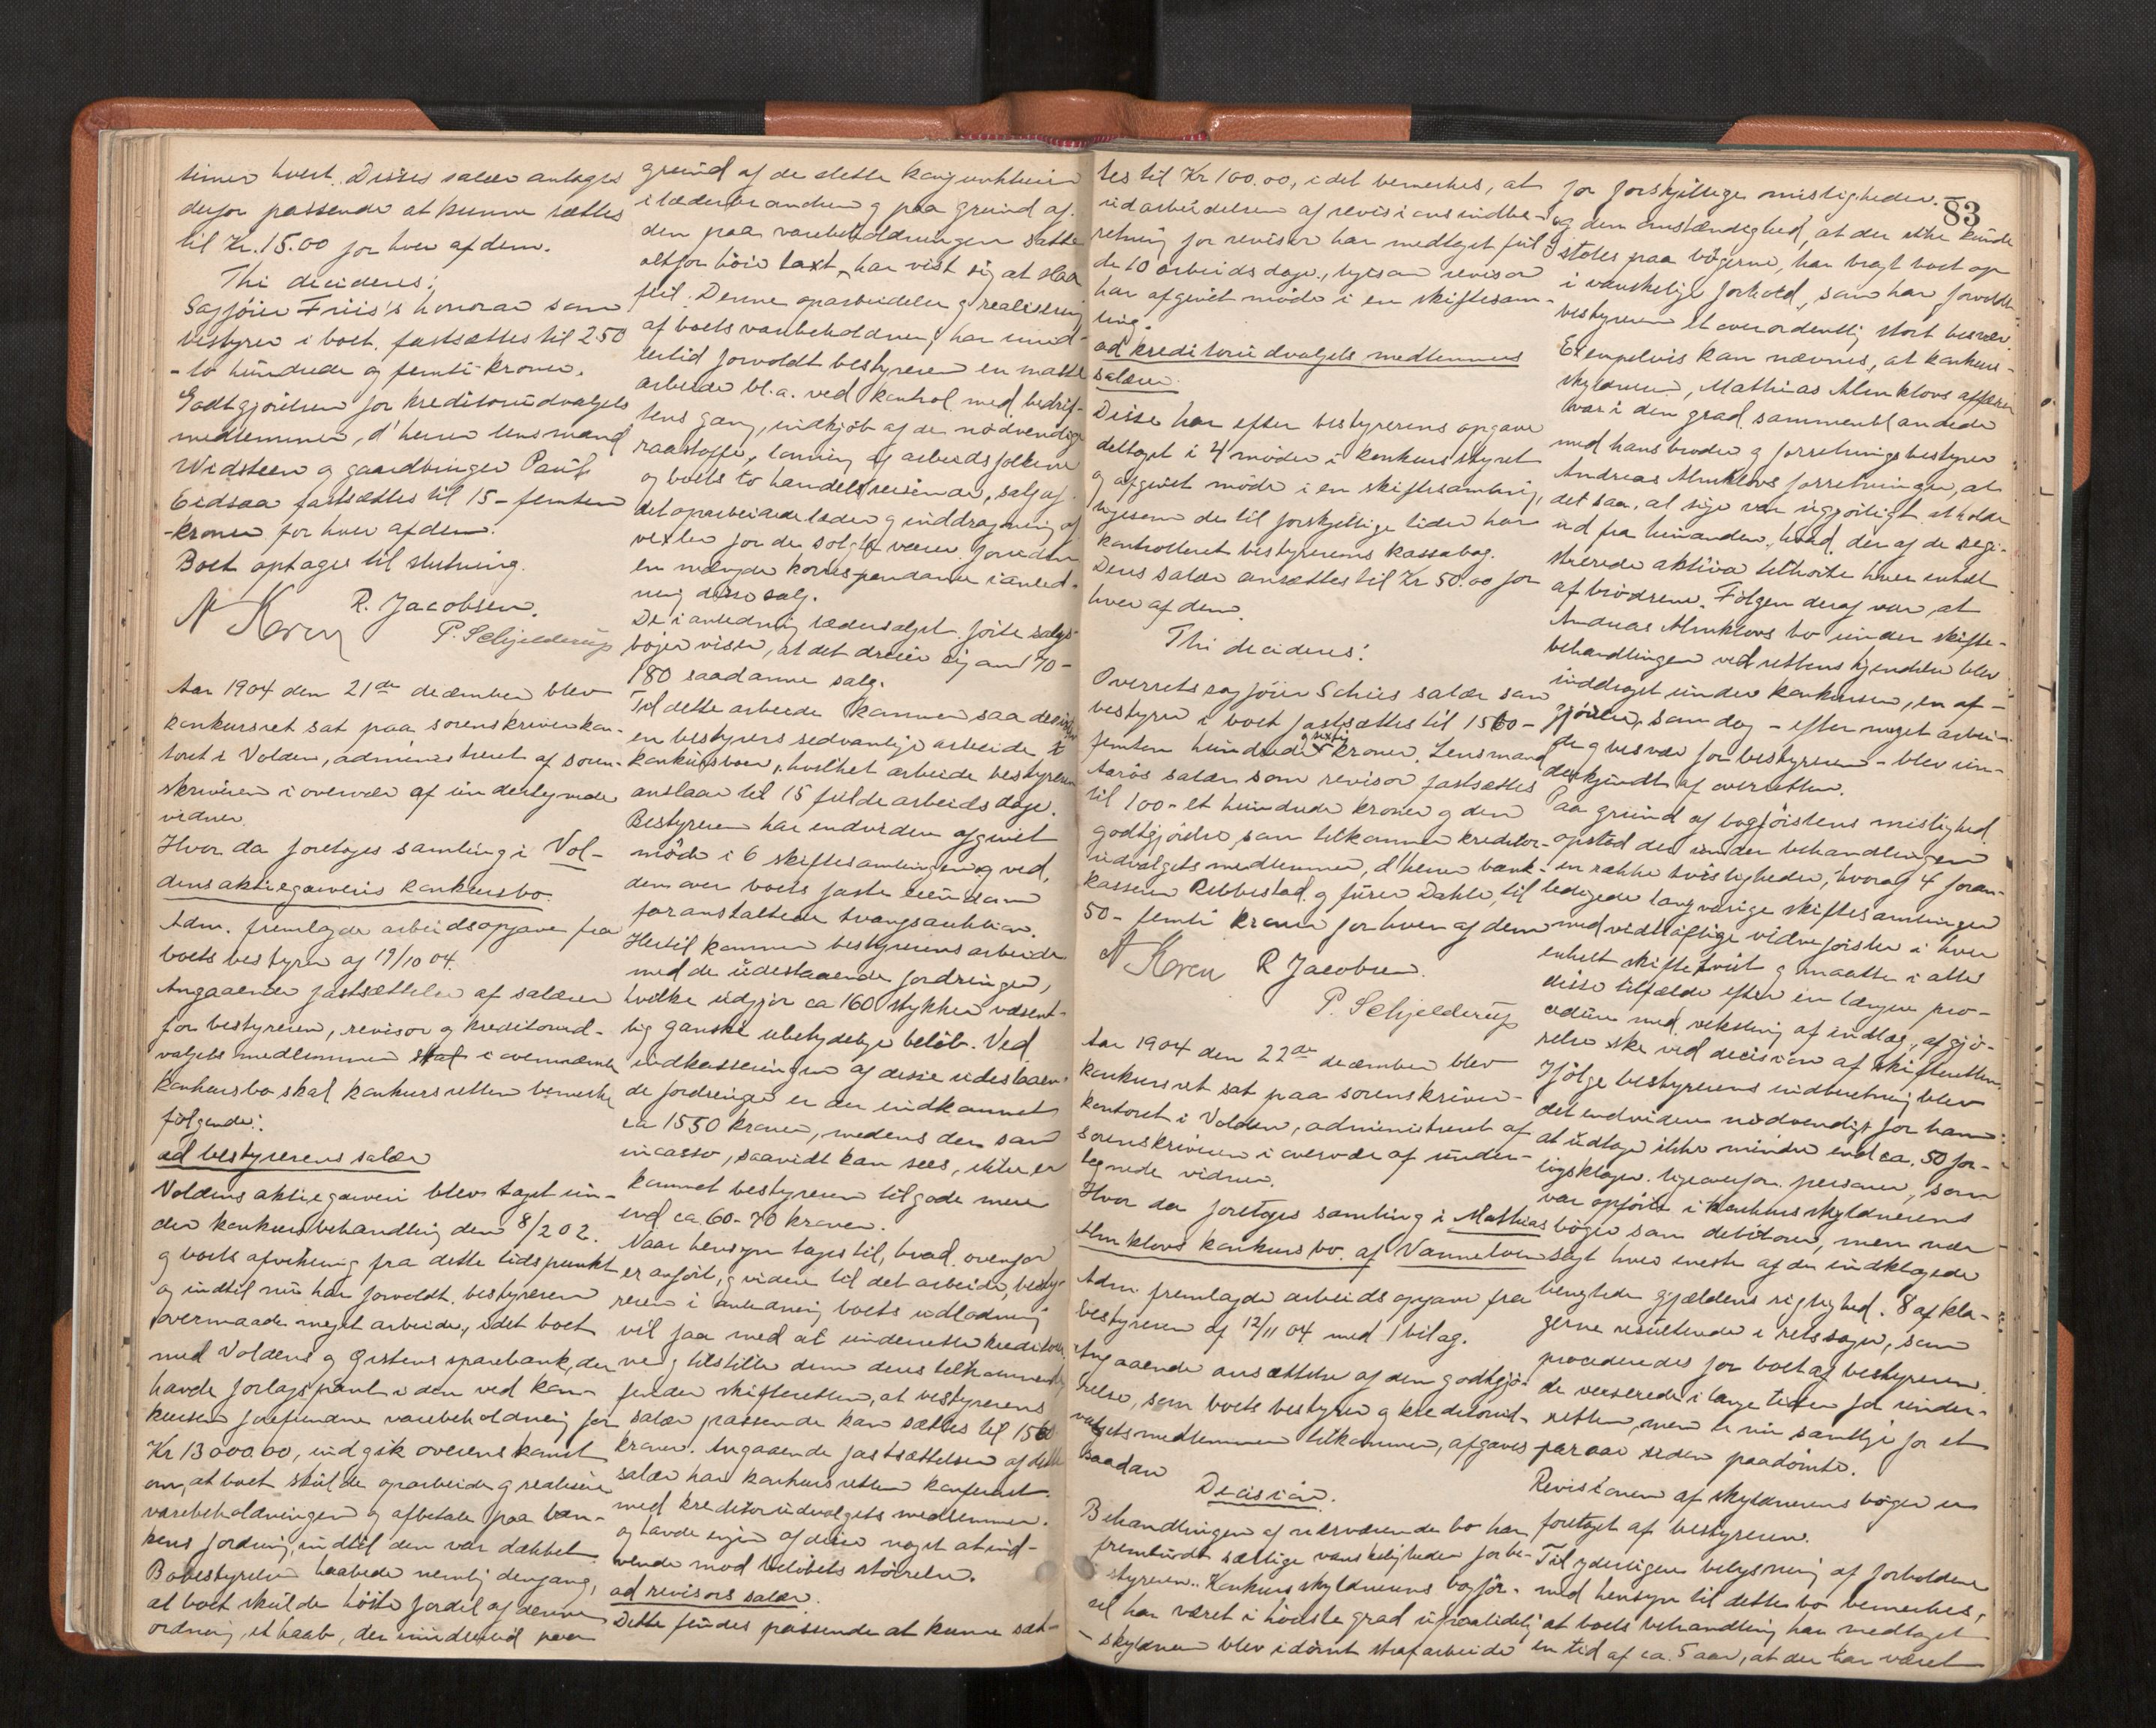 timer hvert. Disses salær antages
derfor passende at kunne sættes
til Kr. 15.00 for hver af dem.
Thi decideres:
Sagfører Friis's honorar som
bestyrer i boet fastsættes til 250
- to hundrede og femti - kroner.
Godtgjørelsen for kreditorudvalgets
medlemmer, d'herrer lensmand
Widsteen og gaardbruger Paul
Eidsaa fastsættes til 15 - femten
- kroner for hver af dem.
Boet optages til slutning.
R. Jacobsen.
P. Schjelderup
Aar 1904 den 21de december blev
konkursret sat paa sorenskriverkon-
toret i Volden, administreret af soren-
skriveren i overvær af undertegnede
vidner.
Hvor da foretoges samling i Vol-
dens aktiegarveris konkursbo.
Adm. fremlagde arbeidsopgave fra
boets bestyrer af 19/10 04.
Angaaende fastsættelse af salærer
for bestyreren, revisor og kreditorud-
valgets medlemmer skal i ovennævnte
konkursbo skal konkursretten bemerke
følgende:
ad bestyrerens salær
Voldens aktiegarveri blev taget un-
der konkursbehandling den 8/2 02.
og boets afvikling fra dette tidspunkt
og indtil nu har forvoldt bestyreren
overmaade meget arbeide, idet boet
med Voldens og Ørstens sparebank, der
havde forlagspant i den ved kon-
kursen forefundne varebeholdning for
Kr 13000.00, indgik overenskomst
om, at boet skulde oparbeide og realisere
varebeholdningen og afbetale paa ban-
kens fordring, indtil den var dækket.
Bobestyrelsen haabede nemlig dengang,
at boet skulde høste fordel af denne
ordning, et haab, der imidlertid paa
grund af de slette konjunkturer
i læderbranchen og paa grund af
den paa varebeholdningen satte
altfor høie taxt, har vist sig at slaa
feil. Denne oparbeidelse og realisering
af boets varebeholdning har imid-
lertid forvoldt bestyreren en masse
arbeide bl.a. ved kontrol med bedrif-
tens gang, indkjøb af de nødvendige
raastoffe, lønning af arbeidsfolkene
og boets to handelsreisende, salg af
det oparbeidede læder og inddragning af
vexler for de solgte varer foruden
en mængde korrespondance i anled-
ning disse salg.
De i anledning lædersalget førte salgs-
bøger viser, at det dreier sig om 170-
180 saadanne salg.
Til dette arbeide kommer saa desuden
en bestyrers sedvanlige arbeide i
konkursboer, hvilket arbeide bestyreren
anslaar til 15 fulde arbeidsdage.
Bestyreren har endvidere afgivet
møde i 6 skiftesamlinger og ved
den over boets faste eiendom
foranstaltede tvangsauktion.
Hertil kommer bestyrerens arbeide
med de udestaaende fordringer,
hvilke udgjør ca 160 stykker væsent-
lig ganske ubetydelige beløb. Ved
indkasseringen af disse udestaaen-
de fordringer er der indkommet
ca 1550 kroner, medens der som
incasso, saavidt kan sees, ikke er
kommet bestyreren tilgode mere
end ca. 60-70 kroner.
Naar hensyn tages til, hvad ovenfor
er anført, og videre til det arbeide, besty-
reren i anledning boets udlodning
vil faa med at underrette kreditorer-
ne og tilstille dem deres tilkommende
finder skifteretten, at bestyrerens
salær passende kan sættes til 1560
kroner. Angaaende fastsættelsen af dette
salær har konkursretten konfereret
med kreditorudvalgets medlemmer
og havde ingen af disse noget at ind-
vende mod beløbets størrelse.
ad revisors salær.
Dette findes passende at kunne sæt-
83
tes til Kr 100.00, idet bemerkes, at
udarbeidelsen af revisionsindbe-
retning for revisor har medtaget ful-
de 10 arbeidsdage, ligesom revisor
har afgivet møde i en skiftesam-
ling.
ad kreditorudvalgets medlemmers
salærer.
Disse har efter bestyrerens opgave
deltaget i 4 møder i konkursstyret
og afgivet møde i en skiftesamling,
ligesom de til forskjellige tider har
kontrolleret bestyrerens kassabog.
Deres salær ansættes til Kr 50.00 for
hver af dem.
Thi decideres:
Overretssagfører Schies salær som
bestyrer i boet fastsættes til 1560 -
femten hundrede og sexti kroner. Lensmand
Aarøs salær som revisor fastsættes
til 100 - et hundrede kroner og den
godtgjørelse, som tilkommer kreditor-
udvalgets medlemmer, d'herrer bank-
kasserer Ribbestad og fürer Dahle, til
50 - femti kroner for hver af dem
R Jacobsen.
P. Schjelderup
Aar 1904 den 22de december blev
konkursret sat paa sorenskriver-
kontoret i Volden, administreret af
sorenskriveren i overvær af under-
tegnede vidner.
Hvor da foretoges samling i Mathias
Almklovs konkursbo af Vannelven
Adm fremlagde arbeidsopgave fra
bestyreren af 12/11 04 med 1 bilag.
Angaaende ansættelse af den godtgjø-
relse, som boets bestyrer og kreditorud-
valgets medlemmer tilkommer, afgaves
saadan
Decision.
Behandlingen af nærværende bo har
frembudt særlige vanskeligheder for be-
styreren. Konkursskyldnerens bogfør-
sel har været i høieste grad upaalidelig
- skyldneren blev idømt strafarbeide
for forskjellige misligheder. -
og den omstændighed, at der ikke kunde
stoles paa bøgerne, har bragt boet op
i vanskelige forhold, som har forvoldt
bestyreren et overordentlig stort besvær.
Exempelvis kan nævnes, at konkurs-
skyldneren, Mathias Almklovs affærer
var i den grad sammenblandede
med hans broder og forretningsbestyrer
Andreas Almklovs forretninger, at
det saa at sige var ugjørligt at holde
ud fra hinanden, hvad der af de regi-
strerede aktiva tilhørte hver enkelt
af brødrene. Følgen deraf var, at
Andreas Almklovs bo under skifte-
behandlingen ved rettens kjendelse blev
inddraget under konkursen, en af-
gjørelse, som dog - efter meget arbei-
de og besvær for bestyreren - blev un-
derkjendt af overretten.
Paa grund af bogførselens mislighed
opstod der under behandlingen
en række tvistigheder, hvoraf 4 foran-
ledigede langvarige skiftesamlinger
med vidtløftige vidneførsler i hver
enkelt skiftetvist og maatte i alle
disse tilfælde efter en længere pro-
cedure med veksling af indlæg, afgjø-
relse ske ved decision af skifteretten.
Ifølge bestyrerens indberetning blev
det endvidere nødvendigt for ham
at udtage ikke mindre end ca. 50 for-
ligsklager ligeoverfor personer, som
var opført i konkursskyldnerens
bøger som debitorer, men nær
sagt hver eneste af de indklagede
benegtede gjældens rigtighed. 8 af kla-
gerne resulterede i retssager, som
procederedes for boet af bestyreren.
de verserede i lange tider for under-
retten, men er nu samtlige for et
par aar siden paadømte.
Revisionen af skyldnerens bøger er
foretaget af bestyreren.
Til yderligere belysning af forholdene
med hensyn til dette bo bemerkes,
at boets behandling har medtaget
en tid af ca. 5 aar, at der har været